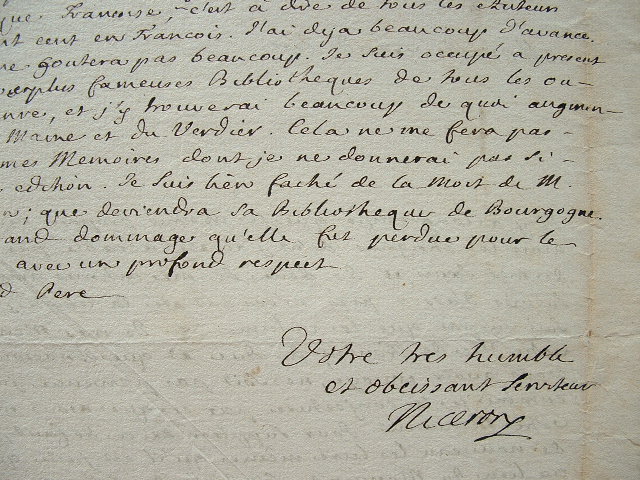 que Francoise, c'est a dire de tous les Auteurs
nt ecrit en Francois. J'ai deja beaucoup d'avance.
me coutera pas beaucoup. Je suis occupé a present
les plus fameuses Bibliotheques de tous les ou-
nre, et j'y trouverai beaucoup de quoi augmen-
Maine et du Verdier. Cela ne me fera pas
mes Memoires dont je ne donnerai pas si-
edition. Je suis bien faché de la Mort de M.
; que deviendra sa Bibliotheque de Bourgogne.
and dommage qu'elle fut perdue pour le
avec un profond respect
d Pere
Votre tres humble
et obeissant serviteur
Niceron